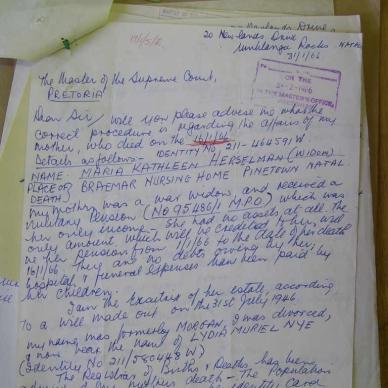 20 Newlands Drive
Umhlanga Rocks NATAL
31/1/66
The Master of the Supreme Court,
PRETORIA
ON THE
MASTER'S OFFICE
Dear Sir, Will you please advise me what the
correct procedure is regarding the affairs of my
mother, who died on the 16/1/66
Details as follows:- IDENTITY No 211-464591 W
NAME MARIA KATHLEEN HERSELMAN (WIDOW)
PLACE OF DEATH) BRAEMAR NURSING HOME PINETOWN NATAL
My mother was a war widow, and received a
military Pension (No 95486/1 M.P.O) which was
her only income - She had no assets at all. The
only amount which will be credited to her, will
be her pension from 1/1/66 to the date of her death
16/1/66. They are no debts owing by her;
hospital & funeral expenses have been paid by
her children.
I am the Executrix of her estate, according
to a will made out on the 31st July 1946.
My name was formerly MORGAN, I was divorced,
& now bear the name of LYDIA MURIEL NYE
(Identity No 211/580448 W)
The Registrar of Births & Deaths, has been
advised of my mothers death - The Population
identity Card